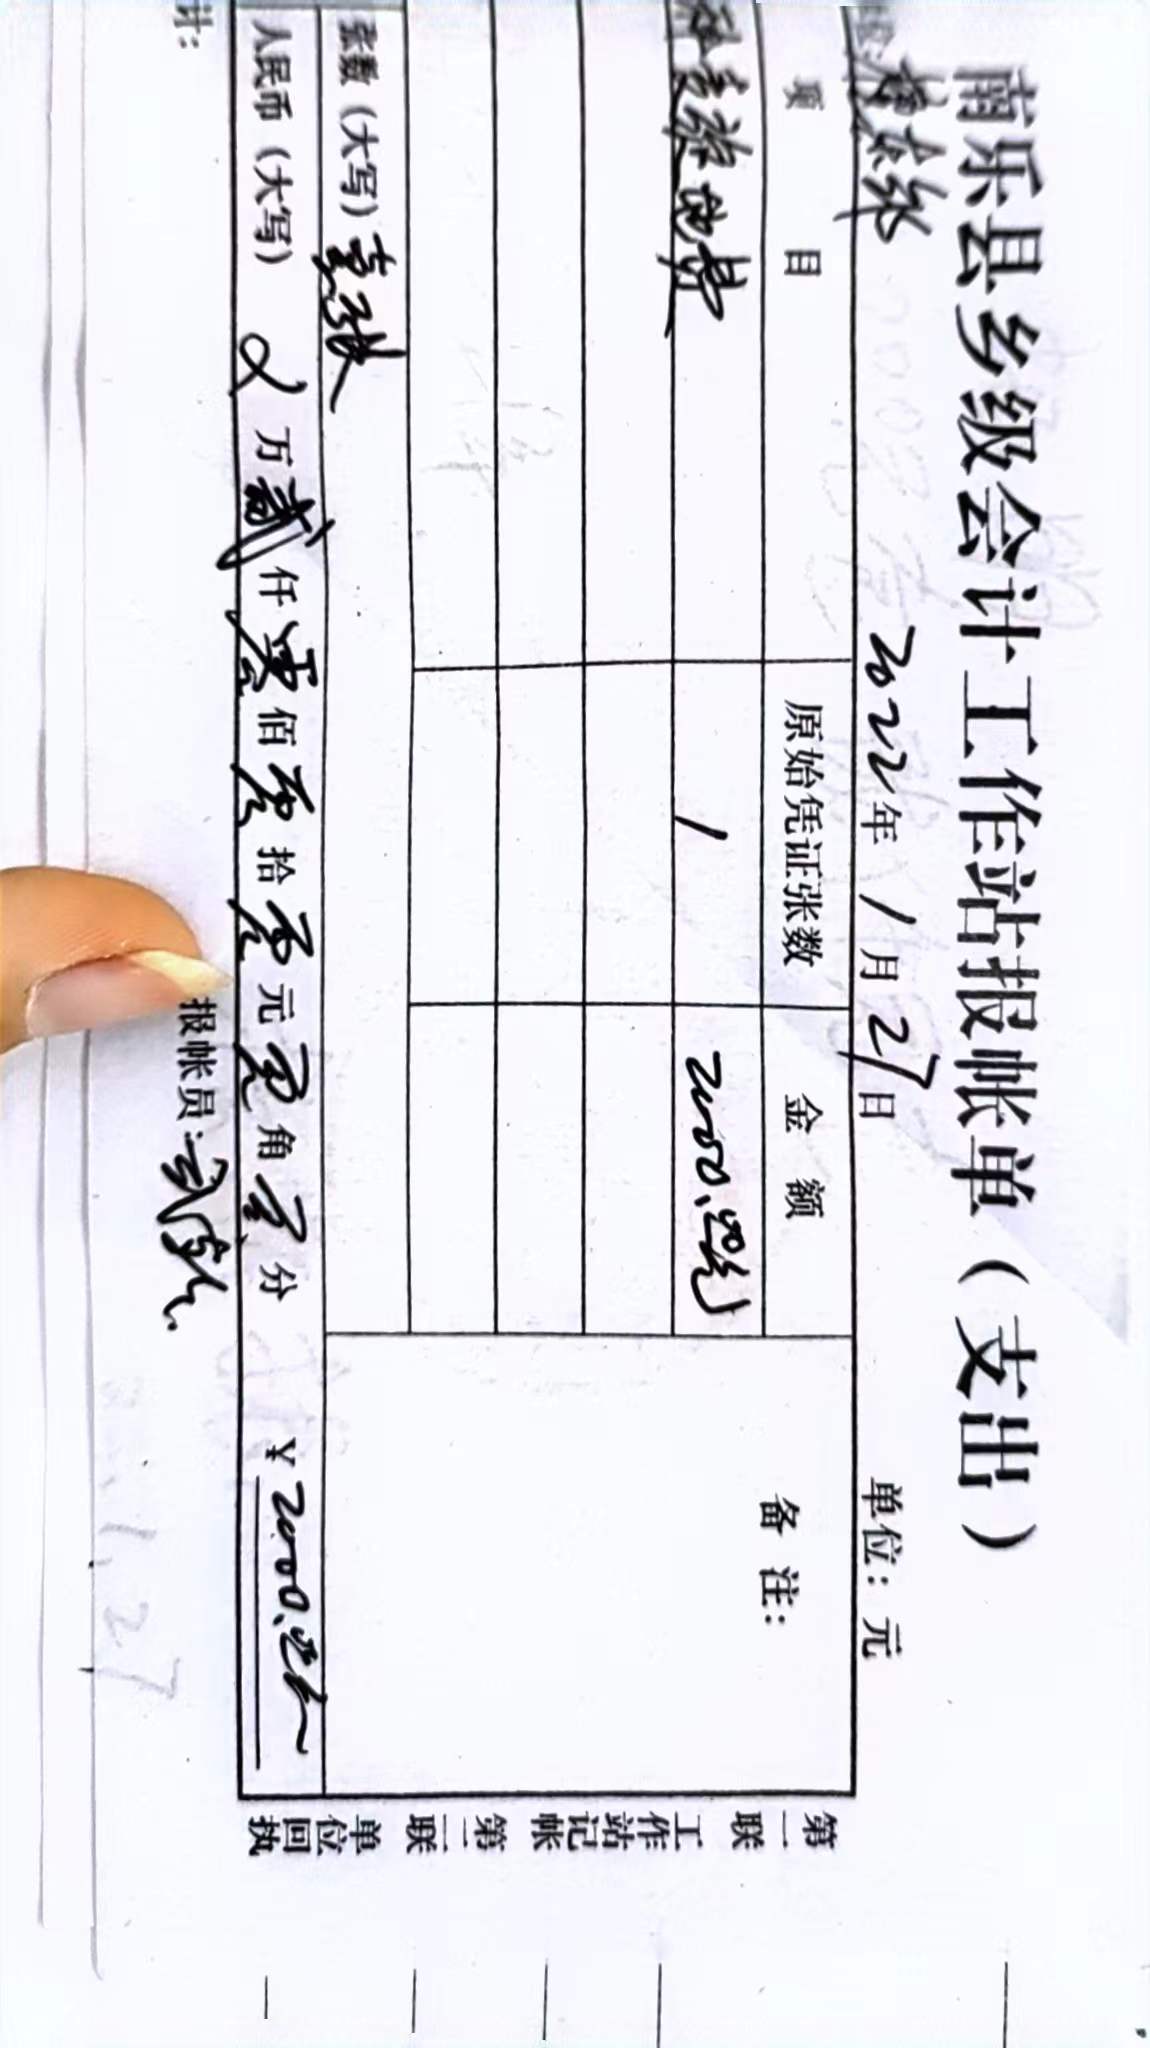 南乐县乡级会计工作站报帐单（支出）
2022年1月27日 单位：元
项 目 原始凭证张数 金 额 备 注：
地费 1 2000.00
张数（大写）壹张
人民币（大写） 万贰仟零佰零拾零元零角零分 ¥2000.00
计： 报帐员：
第一联 工作站记帐 第二联 单位回执
1.27